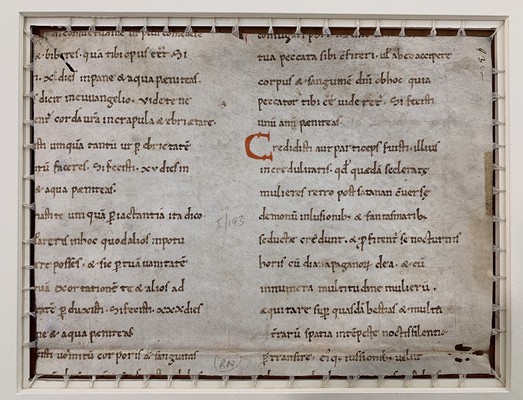 & biberes. quā tibi opus eēt Si
.x. dies in pane & aqua peniteas.
dicit in euuangelio. Videte ne
corda ura in crapula & ebrietate.
isti umquā tantū ut p̄ ebrietatē
tū faceres. Si fecisti. xv dies in
& aqua peniteas.
um quā p̄ iactantia ita dico
in hoc quod alios in potu
posses. & sic p̄ tuā uanitatē
tuā exortationē te & alios ad
p̄duxisti. Si fecisti. xxx dies
ne & aqua peniteas
uomitū corporis & sanguinis
tua peccata sibi c̄fiteri. ul ab eo accipere
corpus & sanguinē dn̄i ob hoc quia
peccator tibi eē uideret. Si fecisti
unū annū peniteas.
Credidisti aut particeps fuisti illius
incredulitatis. qd quedā scelerate
mulieres retro post satanan c̄uerse
demonū inlusionib; & fantasmatib;
seducte credunt. & p̄fitent se nocturnis
horis cū diana paganorū dea. & cū
innumera multitudine mulierū.
equitare sup quasdā bestias & multa
terrarū spatia intēpeste noctis silentio
p̄transire. eiq; iussionib; uelut
I/193
(RN)